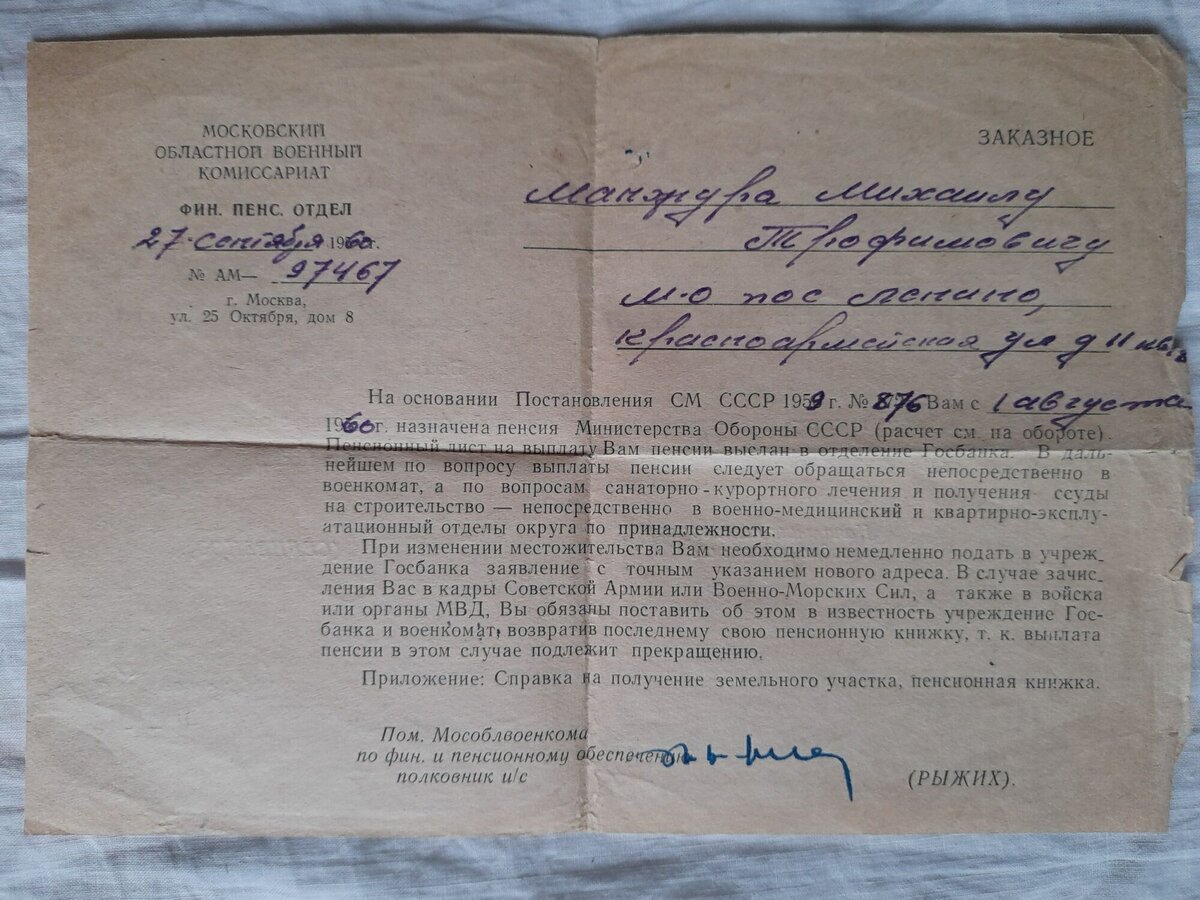 МОСКОВСКИЙ
ОБЛАСТНОЙ ВОЕННЫЙ
КОМИССАРИАТ
ФИН. ПЕНС. ОТДЕЛ
27 сентября 1960 г.
№ АМ— 97467
г. Москва,
ул. 25 Октября, дом 8
ЗАКАЗНОЕ
Манжура Михаилу
Трофимовичу
М-о пос Ленино,
Красноармейская ул д 11
На основании Постановления СМ СССР 1959 г. № 876 Вам с 1 августа
1960 г. назначена пенсия Министерства Обороны СССР (расчет см. на обороте).
Пенсионный лист на выплату Вам пенсии выслан в отделение Госбанка. В даль-
нейшем по вопросу выплаты пенсии следует обращаться непосредственно в
военкомат, а по вопросам санаторно-курортного лечения и получения ссуды
на строительство — непосредственно в военно-медицинский и квартирно-эксплу-
атационный отделы округа по принадлежности.
При изменении местожительства Вам необходимо немедленно подать в учреж-
дение Госбанка заявление с точным указанием нового адреса. В случае зачис-
ления Вас в кадры Советской Армии или Военно-Морских Сил, а также в войска
или органы МВД, Вы обязаны поставить об этом в известность учреждение Гос-
банка и военкомат, возвратив последнему свою пенсионную книжку, т. к. выплата
пенсии в этом случае подлежит прекращению.
Приложение: Справка на получение земельного участка, пенсионная книжка.
Пом. Мособлвоенкома
по фин. и пенсионному обеспечению
полковник и/с
(РЫЖИХ).